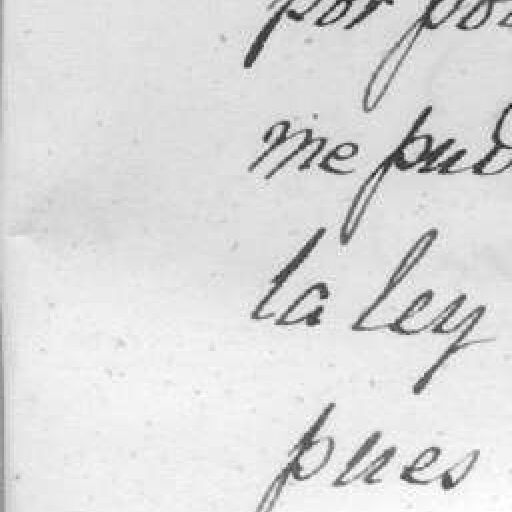 por po
me pud
la ley
pues